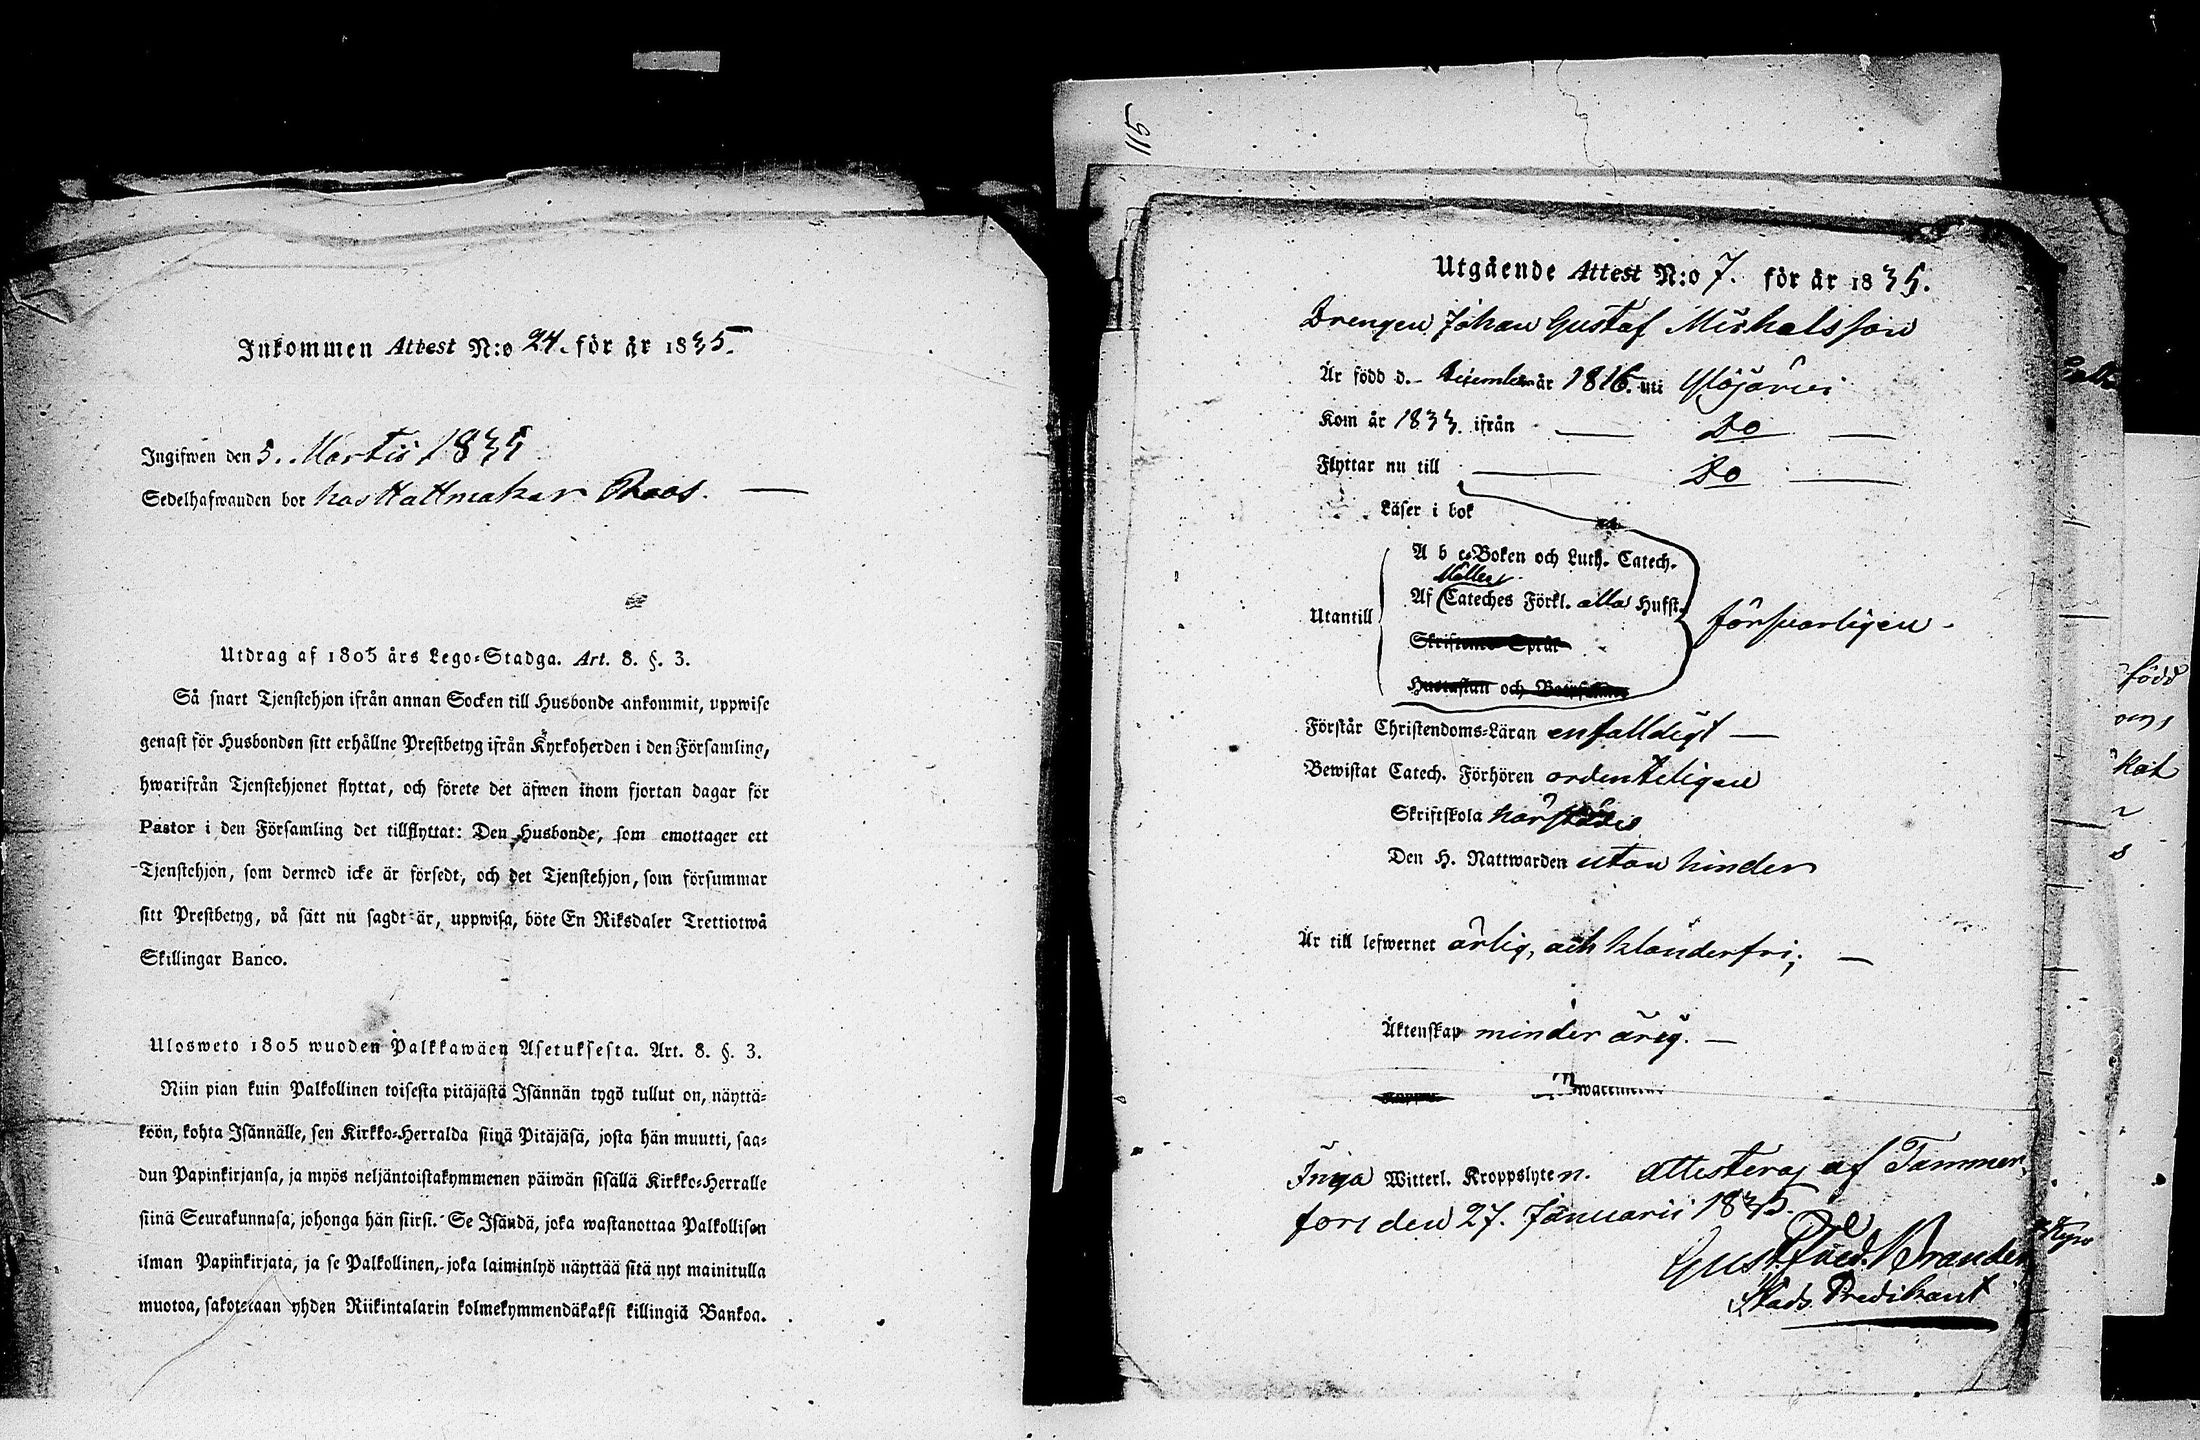 Inkommen Attest N:o 24. för år 1835.
Ingifwen den 5. Martii 1835
Sedelhafwanden bor hos Hattmakar Roos. —
Utdrag af 1805 års Lego-Stadga. Art. 8. §. 3.
Så snart Tjenstehjon ifrån annan Socken till Husbonde ankommit, uppwise
genast för Husbonden sitt erhållne Prestbetyg ifrån Kyrkoherden i den Församling,
hwarifrån Tjenstehjonet flyttat, och förete det äfwen inom fjortan dagar för
Pastor i den Församling det tillflyttat: Den Husbonde, som emottager ett
Tjenstehjon, som dermed icke är försedt, och det Tjenstehjon, som försummar
sitt Prestbetyg, på sätt nu sagdt är, uppwisa, böte En Riksdaler Trettiotwå
Skillingar Banco.
Ulosweto 1805 wuoden Palkkawäen Asetuksesta. Art. 8. §. 3.
Niin pian kuin Palkollinen toisesta pitäjästä Isännän tygö tullut on, näyttä-
köön, kohta Isännälle, sen Kirkko-Herralda siinä Pitäjäsä, josta hän muutti, saa-
dun Papinkirjansa, ja myös neljäntoistakymmenen päiwän sisällä Kirkko-Herralle
siinä Seurakunnasa, johonga hän siirsi. Se Isändä, joka wastanottaa Palkollisen
ilman Papinkirjata, ja se Palkollinen, joka laiminlyö näyttää sitä nyt mainitulla
muotoa, sakotetaan yhden Riikintalarin kolmekymmendäkaksi killingiä Bankoa.
115
Utgående Attest N:o 7. för år 1835.
Drengen Johan Gustaf Michelsson
Är född d. – December år 1816. uti Ylöjärvi
Kom år 1833. ifrån — Do —
Flyttar nu till — Do —
Läser i bok
A b c-Boken och Luth. Catech.
Möllers
Af Cateches Förkl. alla Hufst.
Utantill försvarligen –
Skriftenes Språk
Hustaflan och Botpsalmer
Förstår Christendoms-Läran enfalldigt —
Bewistat Catech. Förhören ordenteligen
Skriftskola härstädes
Den H. Nattwarden utan hinder
Är till lefwernet ärlig, och klanderfri; —
Äktenskap minder årig. —
Inga Witterl. Kroppslyten. Attesteras af Tammer-
fors den 27. Januarii 1835.
Gust. Fred. Brander
Stads Predikant
född